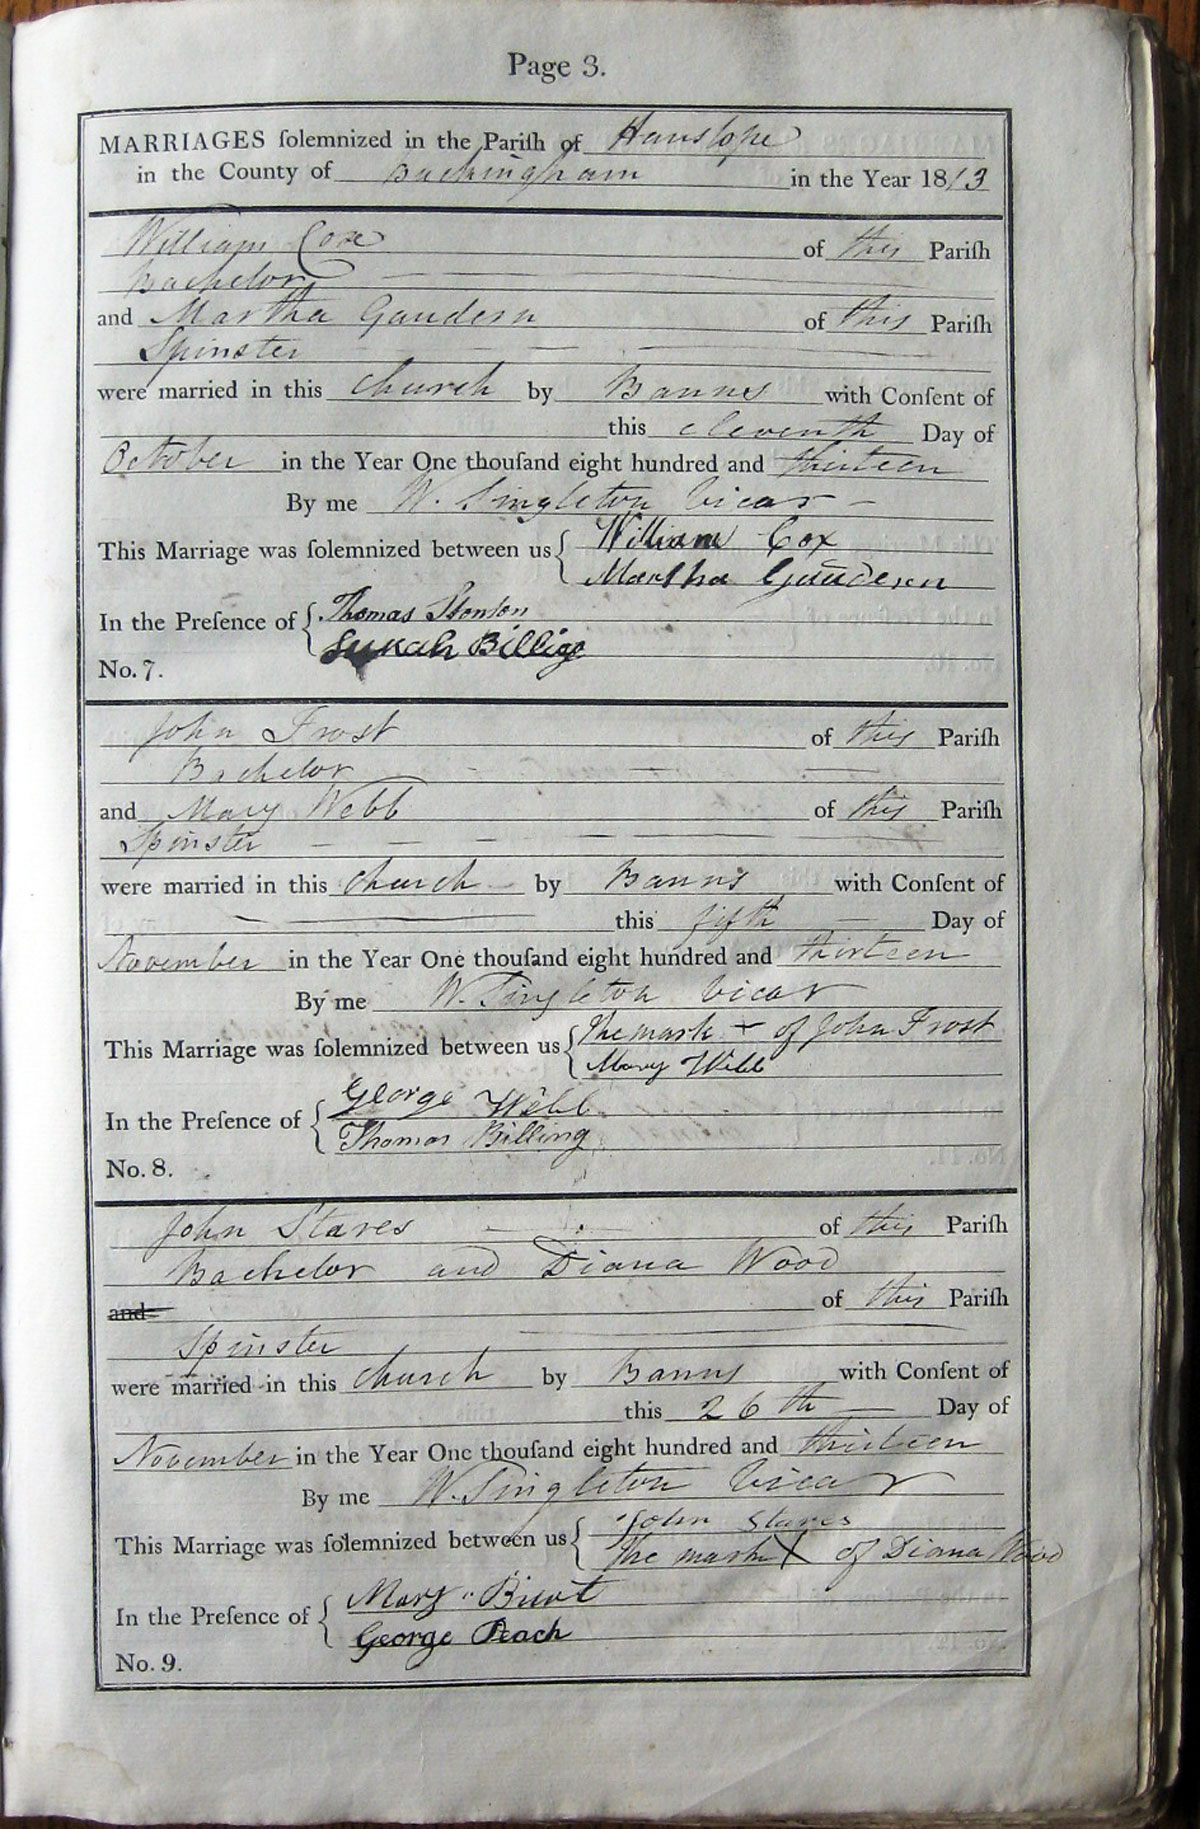 Page 3.
MARRIAGES ſolemnized in the Pariſh of Hanslope
in the County of Buckingham in the Year 1813
William Cox of this Pariſh
Bachelor
and Martha Gaudern of this Pariſh
Spinster
were married in this church by Banns with Conſent of
this eleventh Day of
October in the Year One thouſand eight hundred and thirteen
By me W. Singleton Vicar
This Marriage was ſolemnized between us William Cox
Martha Gaudern
In the Preſence of Thomas Stonton
Billing
No. 7.
John Frost of this Pariſh
Bachelor
and Mary Webb of this Pariſh
Spinster
were married in this church by Banns with Conſent of
this fifth Day of
November in the Year One thouſand eight hundred and thirteen
By me W. Singleton Vicar
This Marriage was ſolemnized between us The mark + of John Frost
Mary Webb
In the Preſence of George Webb
Thomas Billing
No. 8.
John Stares of this Pariſh
Bachelor and Diana Wood
and of this Pariſh
Spinster
were married in this church by Banns with Conſent of
this 26th Day of
November in the Year One thouſand eight hundred and thirteen
By me W. Singleton Vicar
This Marriage was ſolemnized between us John Stares
The mark X of Diana Wood
In the Preſence of Mary
George Peach
No. 9.